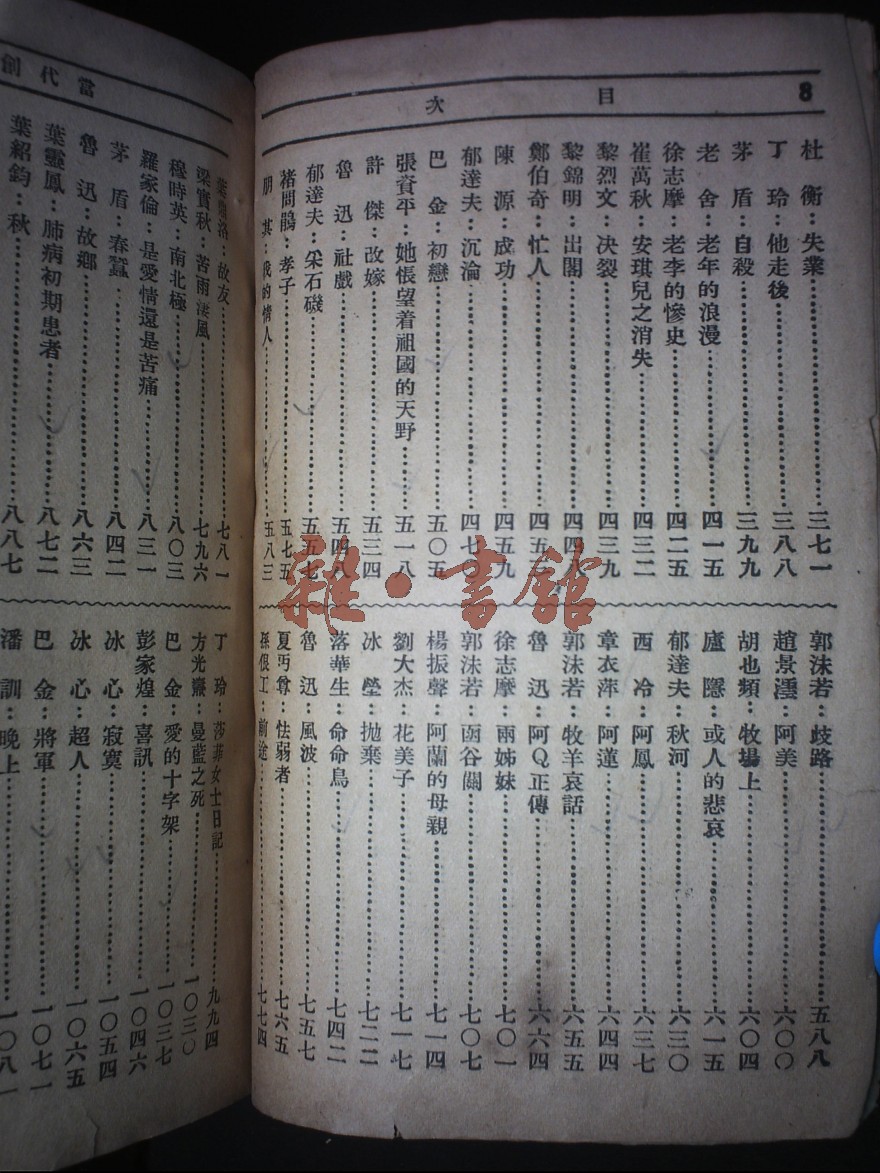 8
目次
杜衡：失業……三七一
丁玲：他走後……三八八
茅盾：自殺……三九九
老舍：老年的浪漫……四一五
徐志摩：老李的慘史……四二五
崔萬秋：安琪兒之消失……四三二
黎烈文：決裂……四三九
黎錦明：出閣……四四八
鄭伯奇：忙人……四五
陳源：成功……四五九
郁達夫：沉淪……四七〇
巴金：初戀……五〇五
張資平：她悵望着祖國的天野……五一八
許傑：改嫁……五三四
魯迅：社戲……五四八
郁達夫：采石磯……五五七
褚問鵑：孝子……五七五
朋其：我的情人……五八三
郭沫若：歧路……五八八
趙景澐：阿美……六〇〇
胡也頻：牧場上……六〇四
廬隱：或人的悲哀……六一五
郁達夫：秋河……六三〇
西冷：阿鳳……六三七
章衣萍：阿蓮……六四四
郭沫若：牧羊哀話……六五五
魯迅：阿Q正傳……六六四
徐志摩：兩姊妹……七〇一
郭沫若：函谷關……七〇七
楊振聲：阿蘭的母親……七一四
劉大杰：花美子……七一七
冰瑩：拋棄……七二二
落華生：命命鳥……七四二
魯迅：風波……七五七
夏丏尊：怯弱者……七六五
孫俍工：前途……七七四
當代創
葉鼎洛：故友……七八一
梁實秋：苦雨淒風……七九六
穆時英：南北極……八〇三
羅家倫：是愛情還是苦痛……八三一
茅盾：春蠶……八四二
魯迅：故鄉……八六三
葉靈鳳：肺病初期患者……八七二
葉紹鈞：秋……八八七
丁玲：莎菲女士日記……九九四
方光燾：曼藍之死……一〇三〇
巴金：愛的十字架……一〇三七
彭家煌：喜訊……一〇四六
冰心：寂寞……一〇五四
冰心：超人……一〇六五
巴金：將軍……一〇七一
潘訓：晚上……一〇八一
雜·書館